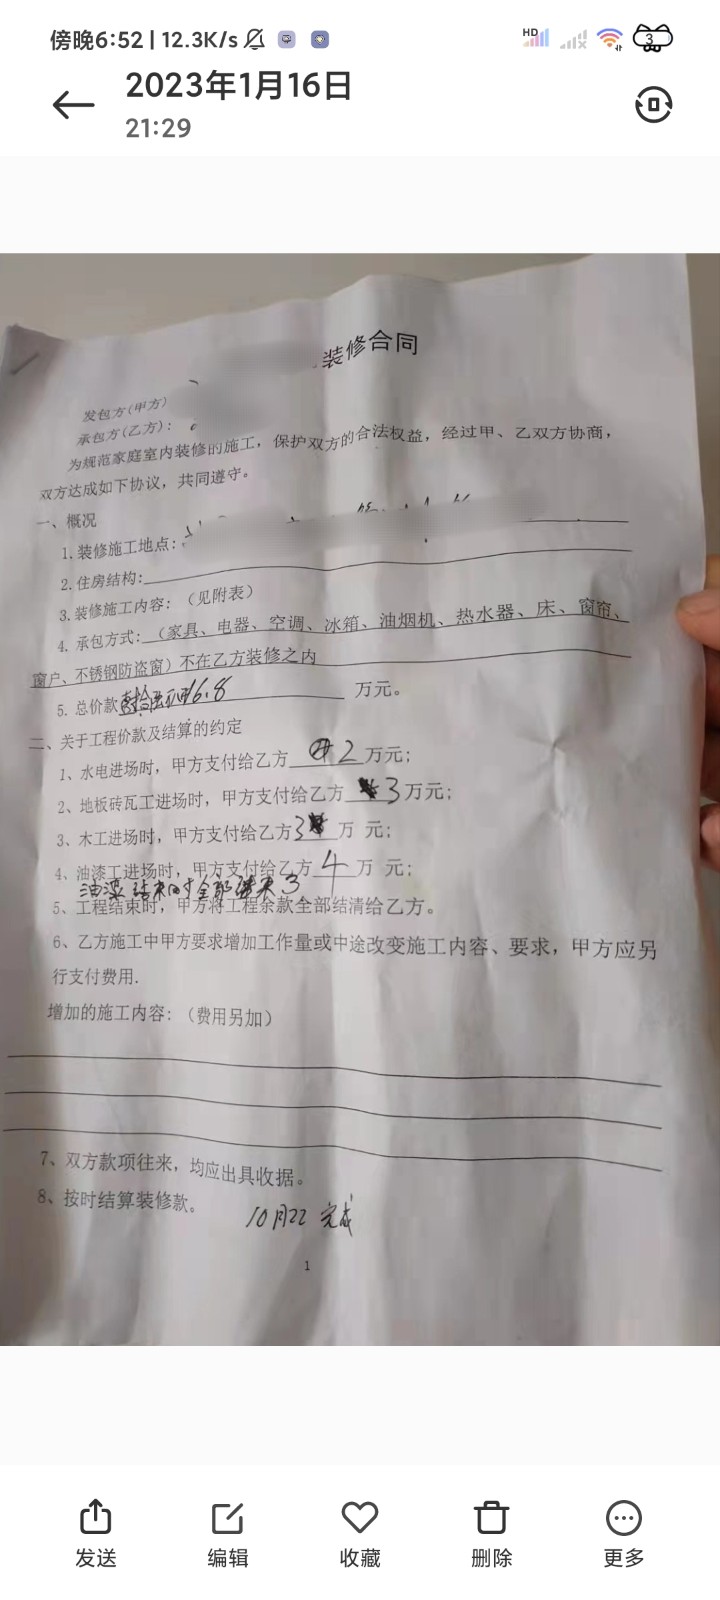 傍晚6:52 | 12.3K/s
HD
3
2023年1月16日
21:29
装修合同
发包方(甲方)
承包方(乙方)：
为规范家庭室内装修的施工，保护双方的合法权益，经过甲、乙双方协商，
双方达成如下协议，共同遵守。
一、概况
1.装修施工地点:
2.住房结构:
3.装修施工内容：（见附表）
4.承包方式:（家具、电器、空调、冰箱、油烟机、热水器、床、窗帘、
窗户、不锈钢防盗窗）不在乙方装修之内
5.总价款 16.8 万元。
二、关于工程价款及结算的约定
1、水电进场时，甲方支付给乙方 2 万元；
2、地板砖瓦工进场时，甲方支付给乙方 3 万元；
3、木工进场时，甲方支付给乙方 3 万 元；
4、油漆工进场时，甲方支付给乙方 4 万 元；
油漆结束时全部 3
5、工程结束时，甲方将工程余款全部结清给乙方。
6、乙方施工中甲方要求增加工作量或中途改变施工内容、要求，甲方应另
行支付费用.
增加的施工内容:（费用另加）
7、双方款项往来，均应出具收据。
8、按时结算装修款。
10月22 完成
1
发送 编辑 收藏 删除 更多